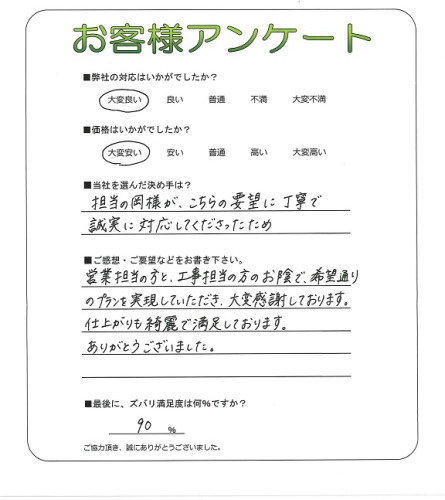 お客様アンケート
■弊社の対応はいかがでしたか?
大変良い 良い 普通 不満 大変不満
■価格はいかがでしたか?
大変安い 安い 普通 高い 大変高い
■当社を選んだ決め手は?
担当の岡様が、こちらの要望に丁寧で
誠実に対応してくださったため
■ご感想・ご要望などをお書き下さい。
営業担当の方と、工事担当の方のお陰で、希望通り
のプランを実現していただき、大変感謝しております。
仕上がりも綺麗で満足しております。
ありがとうございました。
■最後に、ズバリ満足度は何%ですか?
90 %
ご協力頂き、誠にありがとうございました。